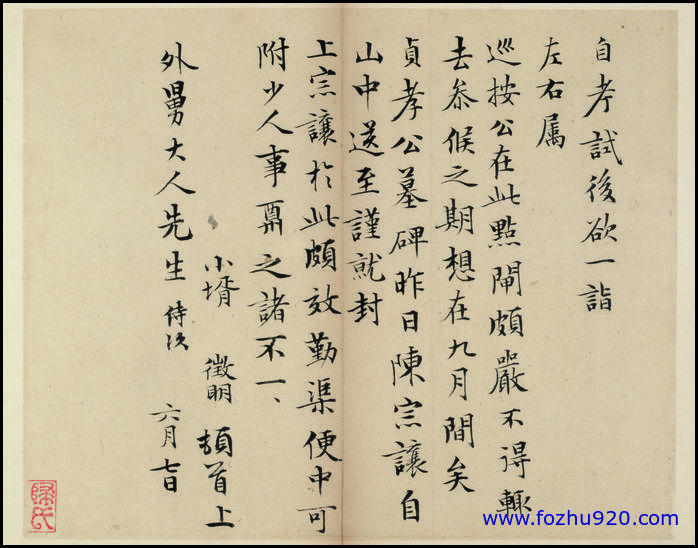 自考試後欲一詣
左右属
巡按公在此點閘頗嚴不得輒
去叅候之期想在九月間矣
貞孝公墓碑昨日陳宗讓自
山中送至謹就封
上宗讓於此頗效勤渠便中可
附少人事
之諸不一、
小壻 徵明 頓首上
外舅大人先生 侍次
六月七日
www.fozhu920.com